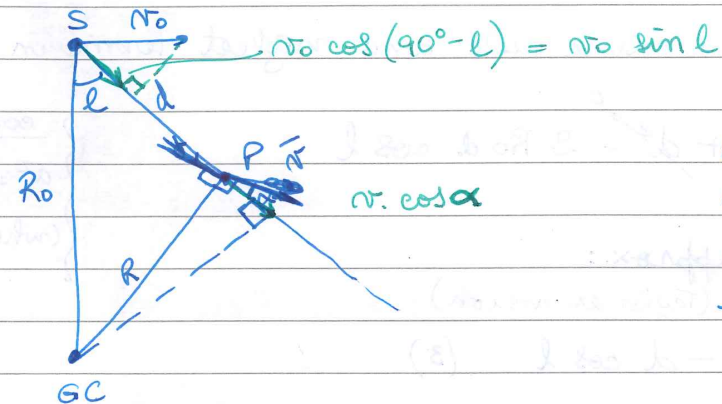 S v₀
v₀ cos (90° - l) = v₀ sin l
l d
P v̄
R₀ α v. cos α
R
GC